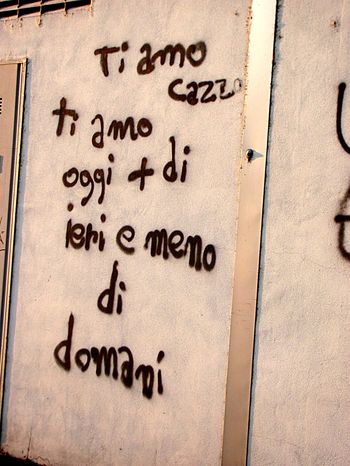 Ti amo
cazzo
ti amo
oggi + di
ieri e meno
di
domani